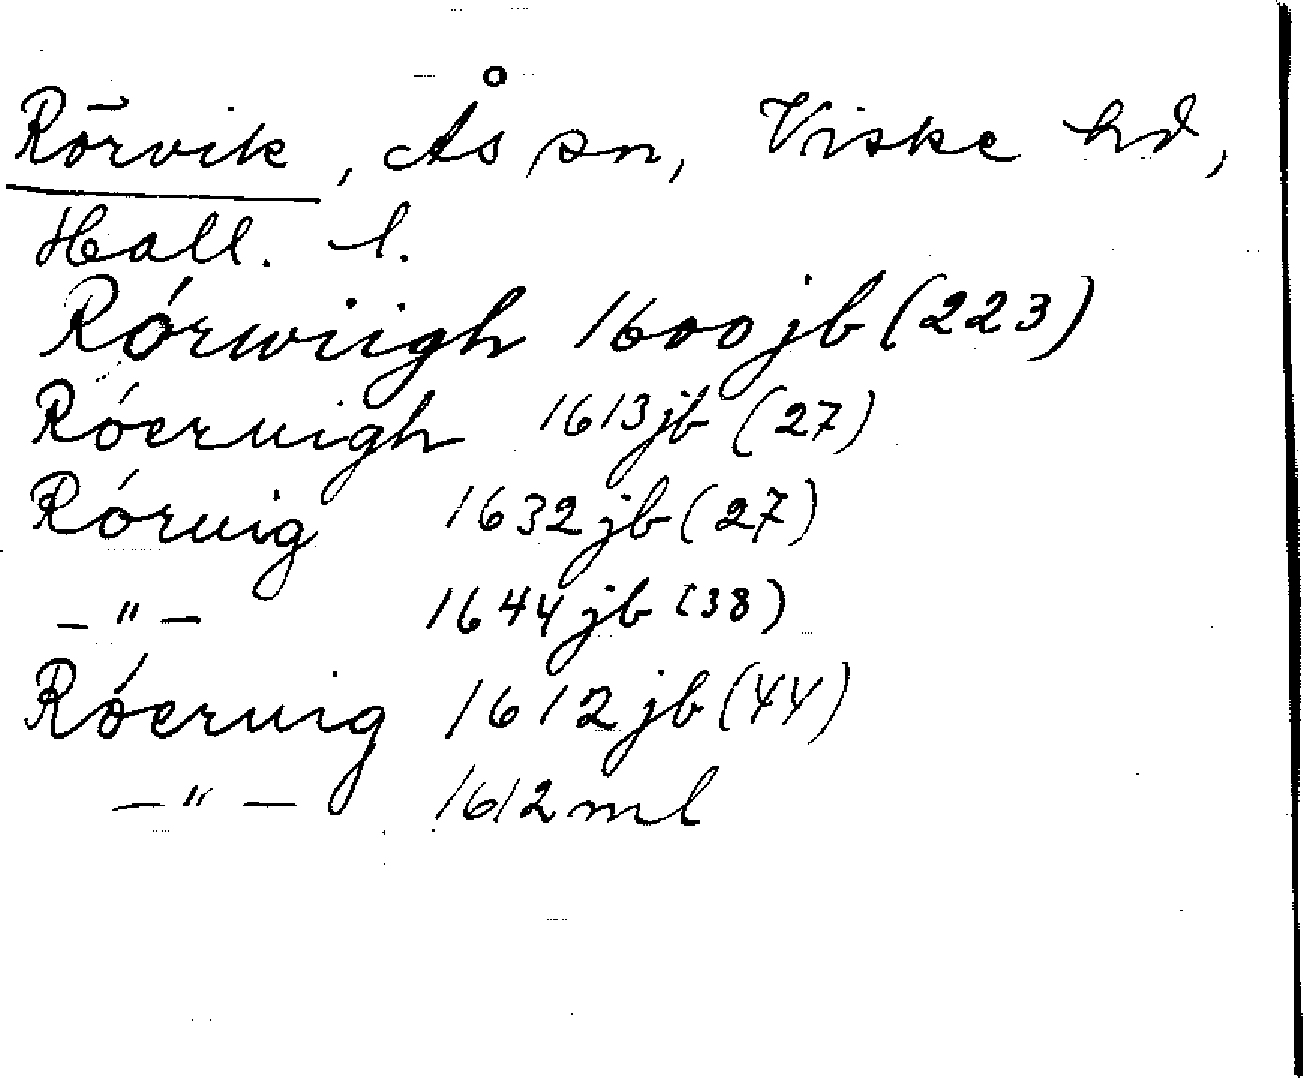 Rörvik, Ås sn, Viske hd,
Hall. l.
Rórwiigh 1600 jb (223)
Róeruigh 1613 jb (27)
Róruig 1632 jb (27)
— " — 1644 jb (38)
Róeruig 1612 jb (44)
— " — 1612 ml